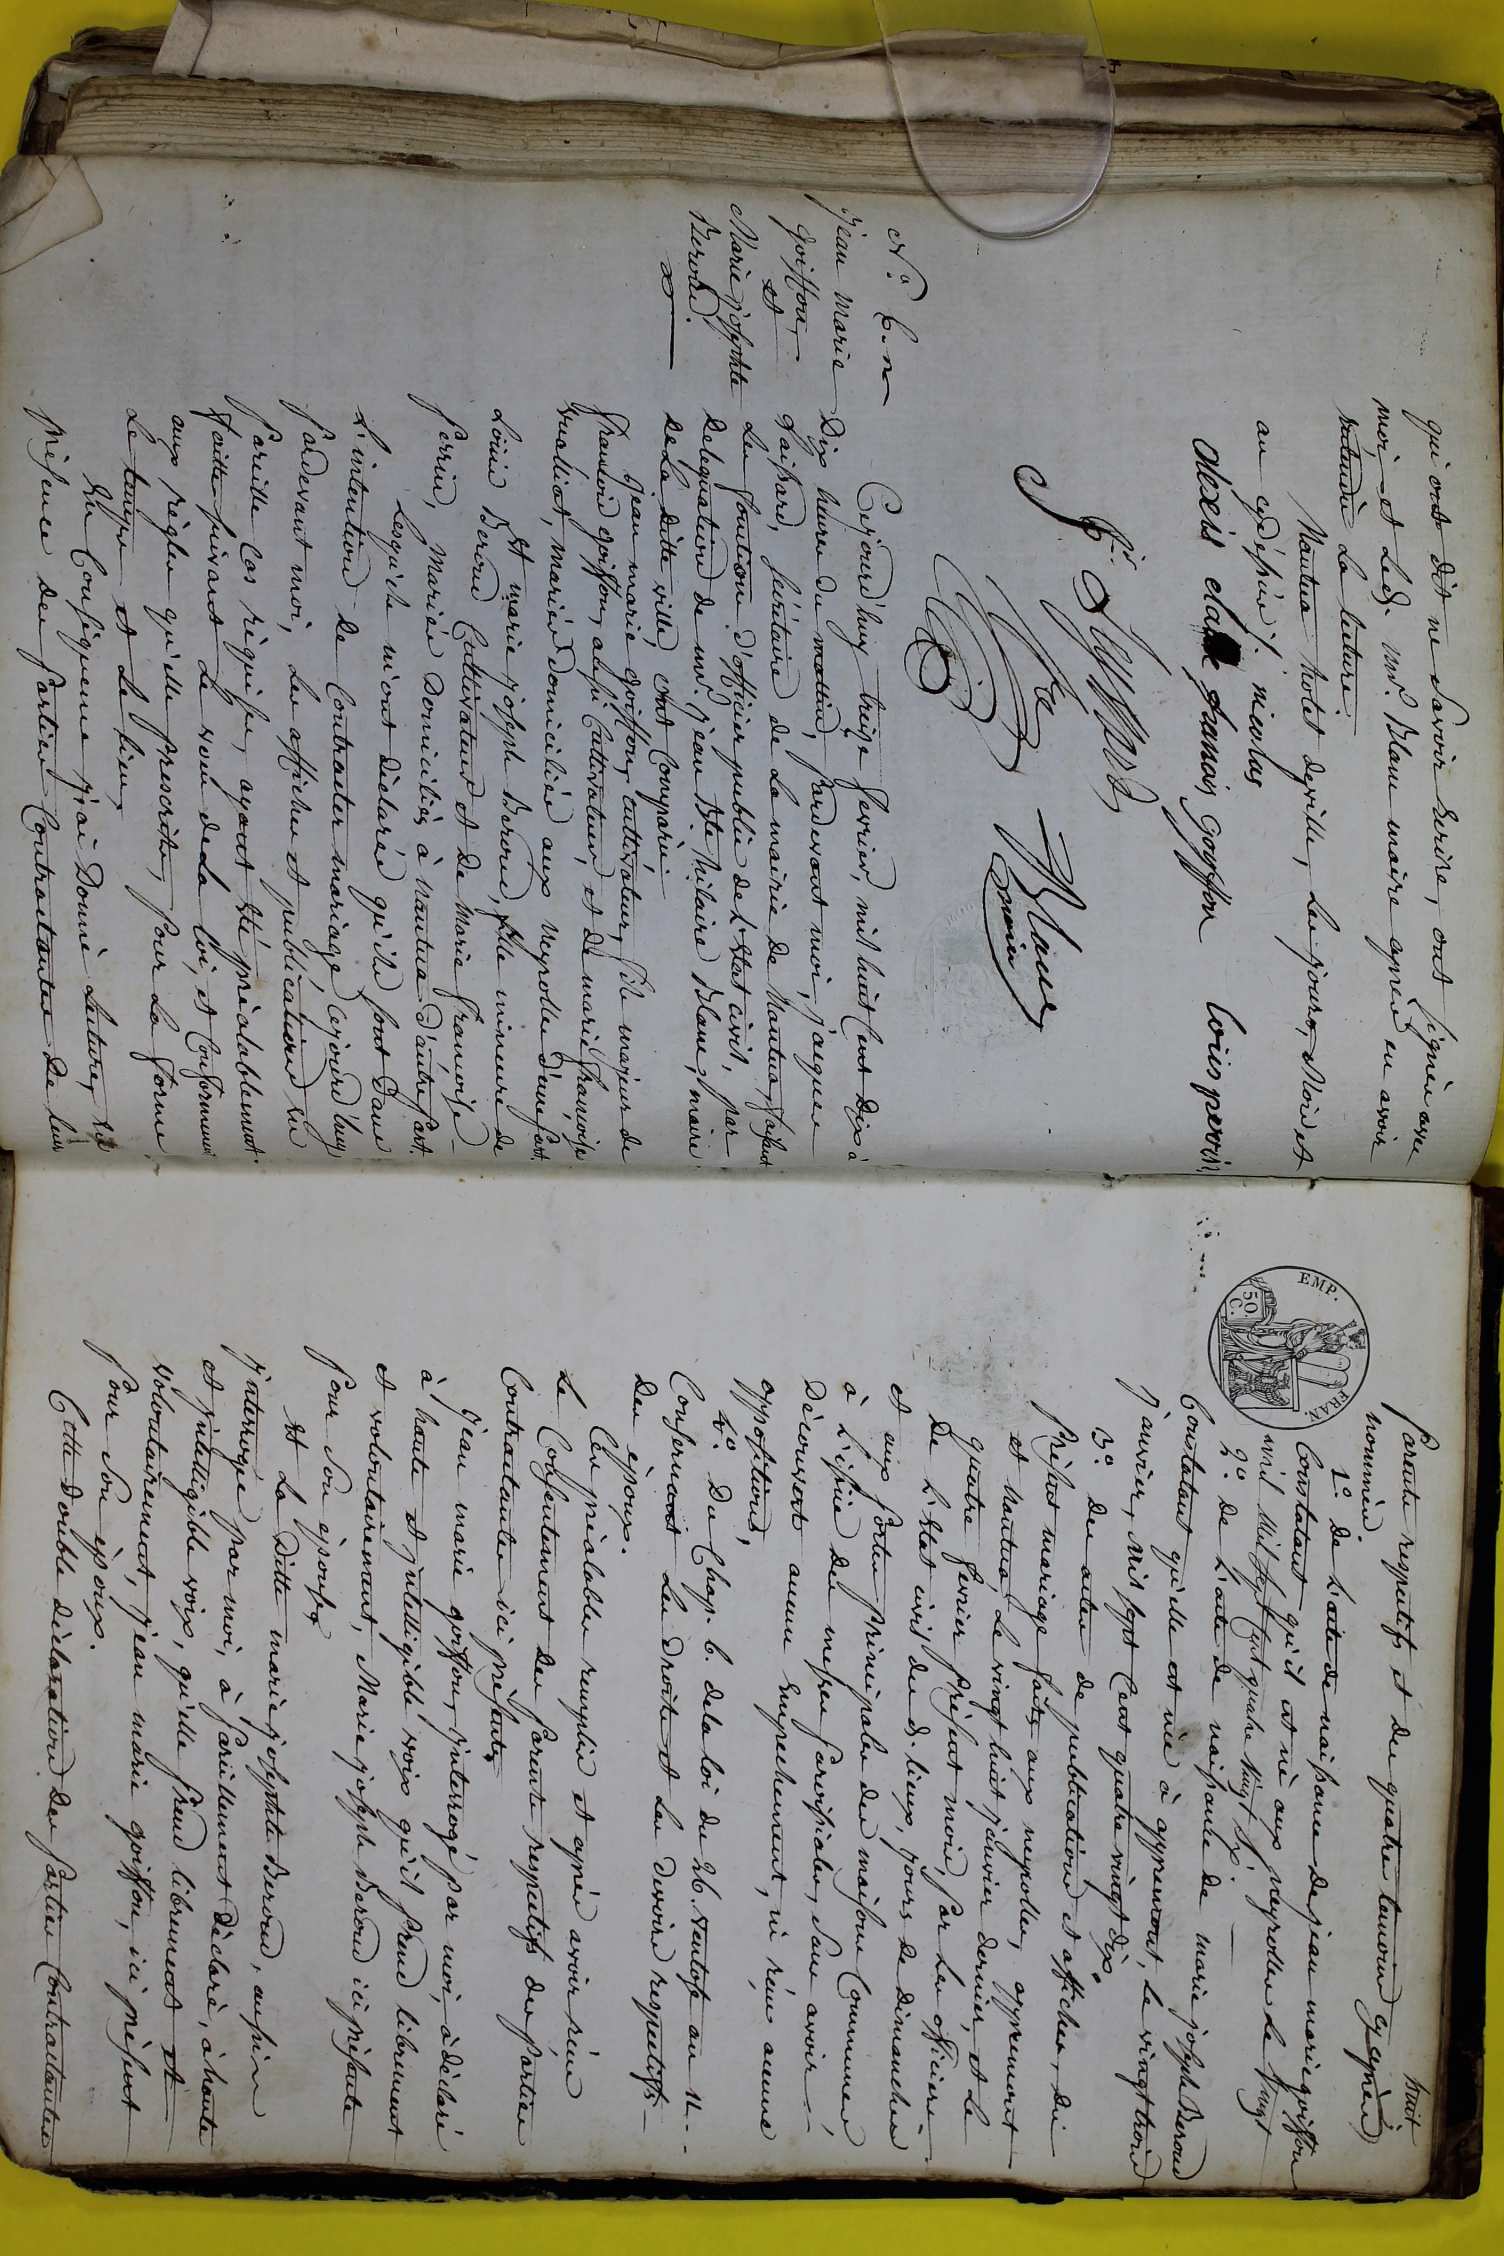 qui ont dit ne Savoir Ecrire, ont Signés avec
moi, et led. mr. Blanc maire après en avoir
entendu la lecture.
Nantua hotel deville, les jours, Mois et
an cydessus ./. nicolas
alexis claude francois goyffon louis perrin
Blanc
maire
N.o 6.
Jean Marie
goiffon,
et
Marie josephte
Beroud.
Cejourd'huy treize fevrier, mil huit Cent Dix à
Dix heures du matin, pardevant moi, jacques
Vaissard, Secrétaire de la mairie de Nantua, faisant
les fonctions d'officier public de l'état civil, par
délégation de mr. jean Bte hilaire Blanc, maire
de la ditte ville, ont Comparu
Jean marie goiffon, cultivateur, fils majeur de
francois goiffon, aussi Cultivateur, et de marie francoise
vualliat, mariés domiciliés aux Neyrolles d'une part.
Et marie joseph Beroud, fille mineure de
Louis Beroud Cultivateur et de Marie francoise
perrin, mariés domiciliés à Nantua d'autre part.
Lesquels m'ont déclarés qu'ils sont dans
L'intention de Contracter mariage Cejourd'huy
pardevant moi, les affiches et publications en
pareille Cas réquise, ayant été préalablement
faitte suivant le voeu de la loi, et Conformément
aux règles qu'elle prescrite, pour la forme
Le temps et le lieu,
En Conséquence j'ai Donné lecture, en
présence des parties Contractantes de leurs
huit
parents respectifs et des quatre temoins cy après
nommés.
1.o De L'acte de naissance de jean marie goiffon
Constatant qu'il est né aux neyrolles le Vingt
avril Mil Sept Cent quatre Vingt Six.
2.o De L'acte de naissance de marie joseph Beroud
Constatant qu'elle est née à apremont, le vingt trois
Janvier, Mil sept Cent quatre vingt dix.
3.o Des actes de publications et affiches, du
présent mariage faites aux neyrolles, apremont
et Nantua, le vingt huit janvier dernier, et le
quatre fevrier présent mois, par les officiers
De L'Etat civil des d. lieux, jours de dimanches
et aux portes principales des maisons Communes
à L'issue des messes paroissiales, sans avoir
Découvert aucun Empechement, ni réçu aucune
oppositions,
4.o Du Chap. 6. de la loi du 26. Ventose an 11.
Concernant les droits et les devoirs respectifs
des époux.
Ces préalables remplis et après avoir réçu
Le Consentement des parents respectifs des parties
Contractantes ici présentes
Jean marie goiffon, interrogé par moi, à déclaré
à haute et jntelligible voix qu'il prend librement
et volontairement, Marie joseph Beroud ici présente
pour Son épouse
Et La Ditte marie josephte Beroud, aussi
jnterrogé par moi, à pareillement déclaré, à haute
et jntelligible voix, qu'elle prend librement et
Volontairement, jean marie goiffon, ici présent
pour Son époux.
Cette double déclaration des parties Contractantes
EMP. FRAN.
50
C.